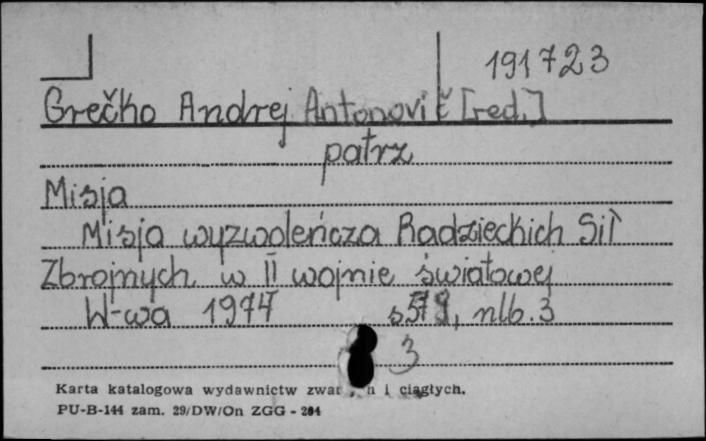 191723
Grečko Andrej Antonovič [red.]
patrz
Misja
Misja wyzwoleńcza Radzieckich Sił
Zbrojnych w II wojnie światowej
W-wa 1974 s 579, nlb. 3
3
Karta katalogowa wydawnictw i ciągłych.
PU-B-144 zam. 29/DW/On ZGG - 204